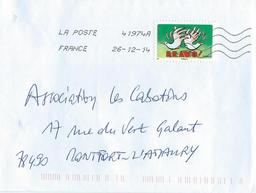 LA POSTE 41974A
FRANCE 26-12-14
BRAVO!
Association les Cabotins
17 rue du Vert Galant
78490 MONTFORT L'AMAURY